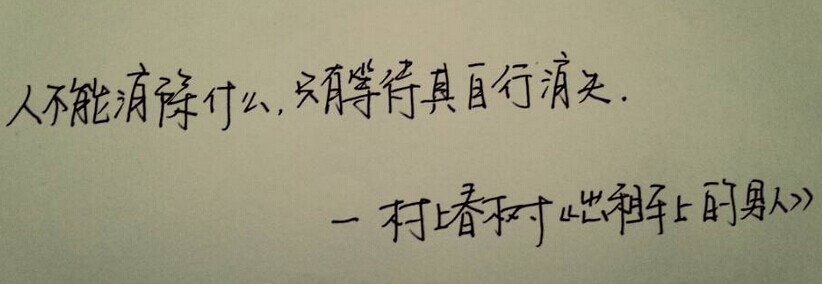 人不能消除什么,只有等待其自行消失.
—村上春树《出租车上的男人》